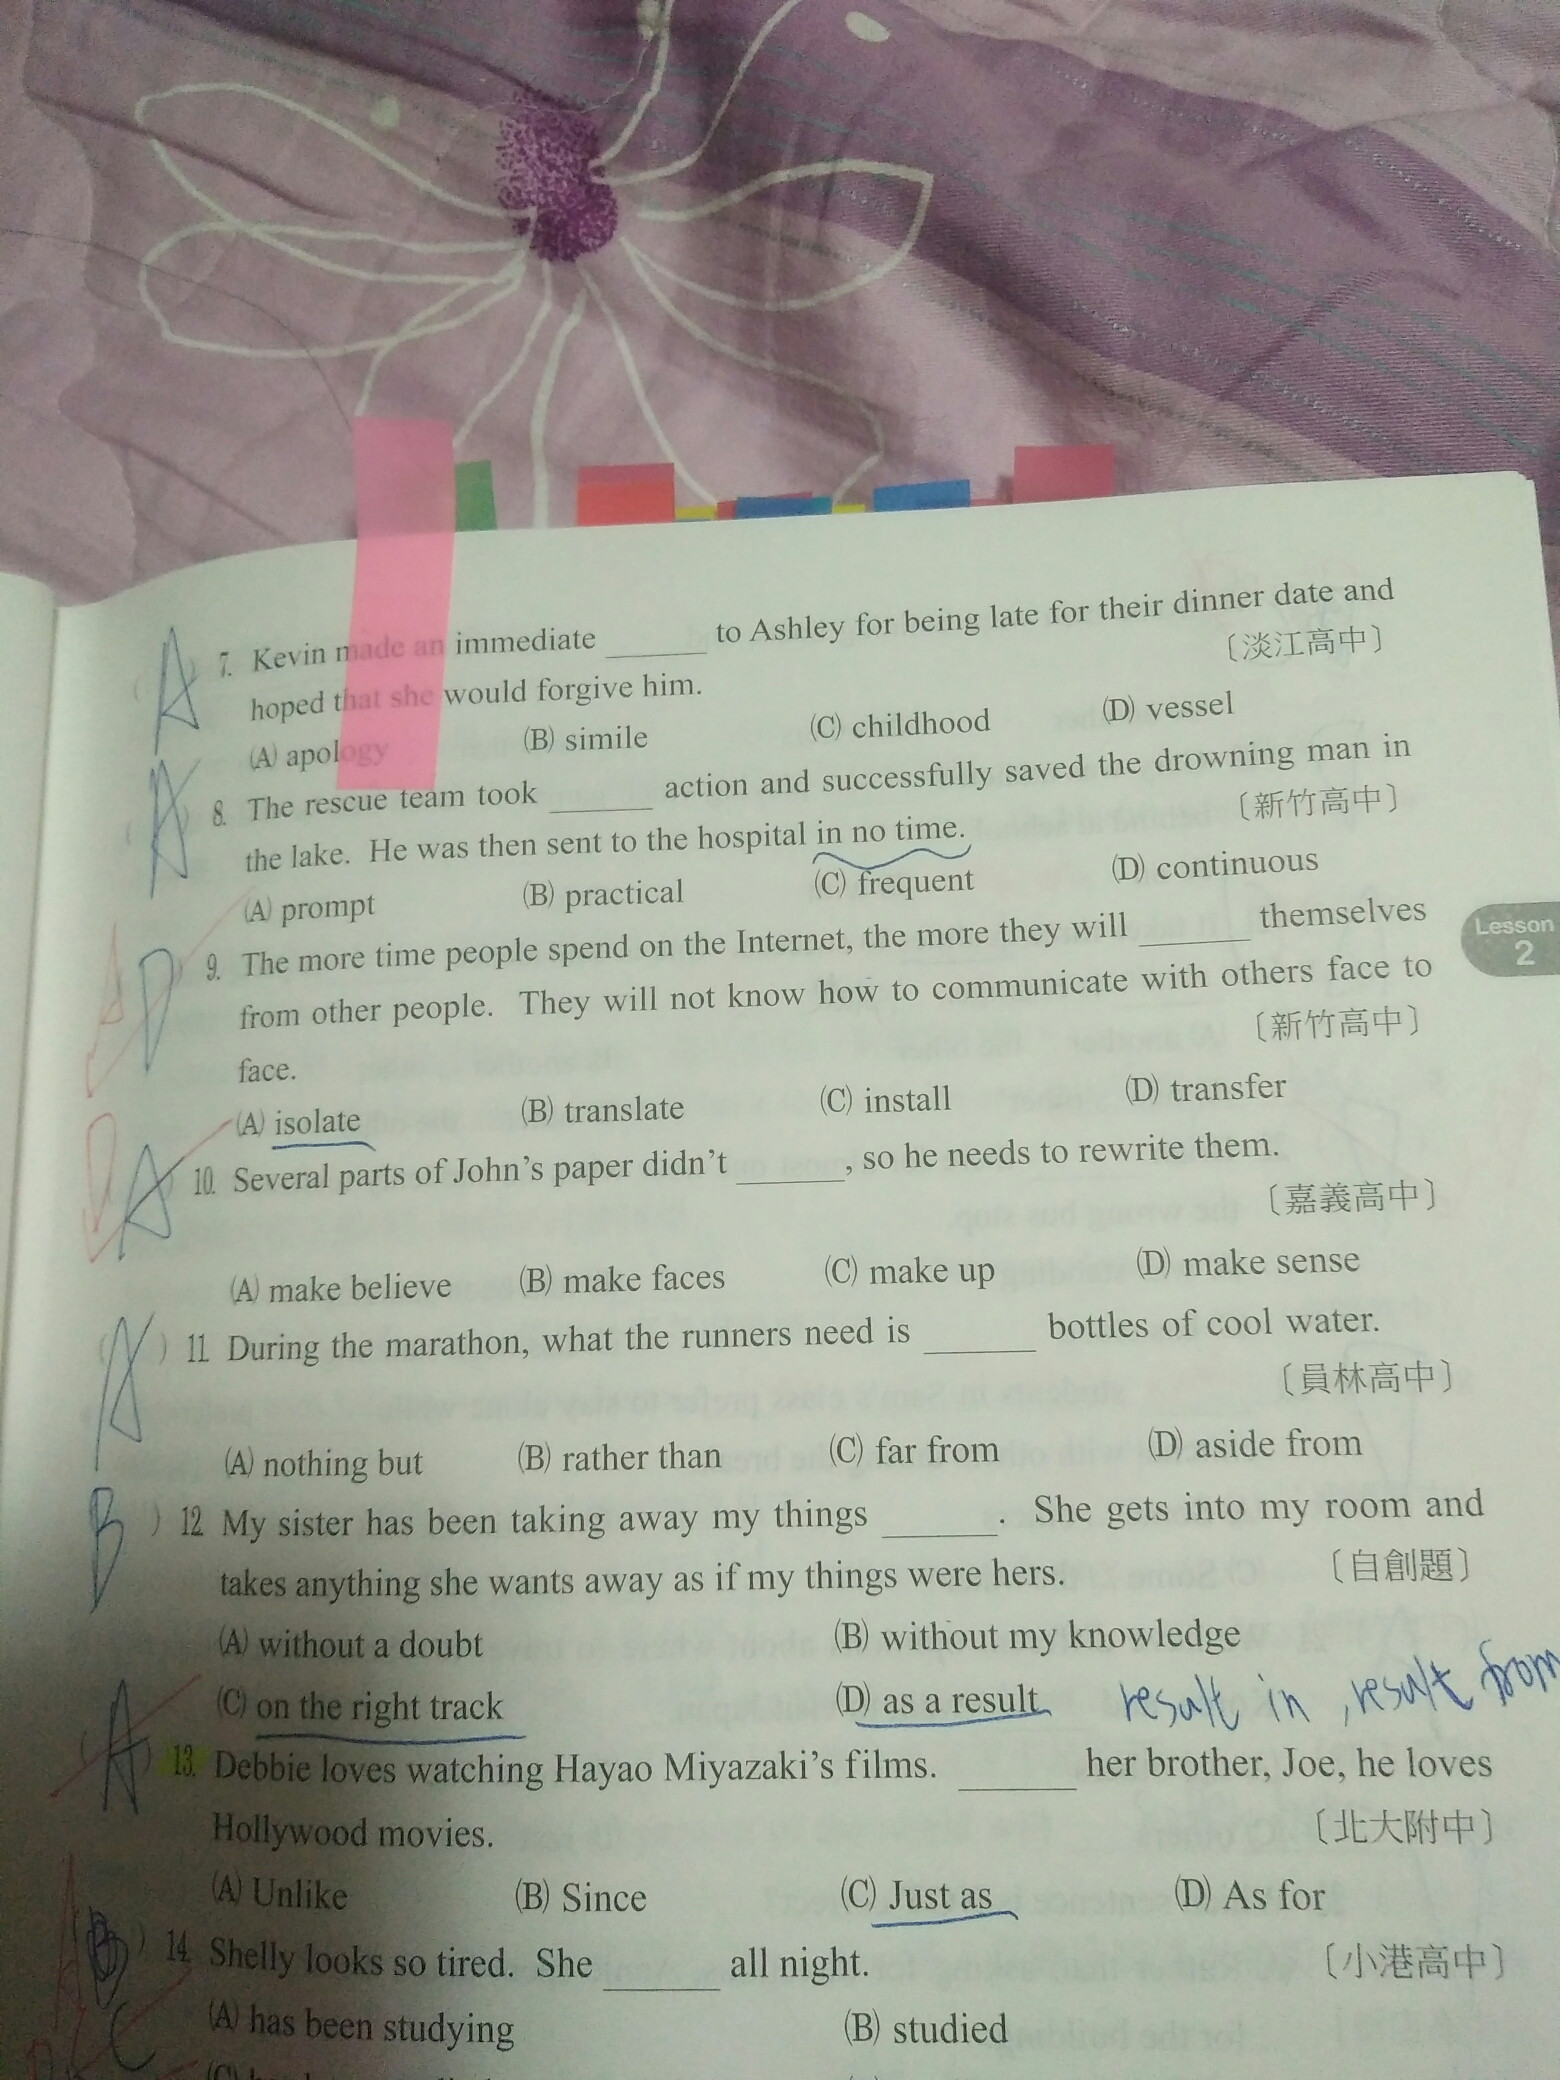 A 7. Kevin made an immediate ______ to Ashley for being late for their dinner date and
hoped that she would forgive him. 〔淡江高中〕
(A) apology (B) simile (C) childhood (D) vessel
A 8. The rescue team took ______ action and successfully saved the drowning man in
the lake. He was then sent to the hospital in no time. 〔新竹高中〕
(A) prompt (B) practical (C) frequent (D) continuous
A D 9. The more time people spend on the Internet, the more they will ______ themselves
from other people. They will not know how to communicate with others face to
face. 〔新竹高中〕
(A) isolate (B) translate (C) install (D) transfer
D A 10. Several parts of John's paper didn't ______, so he needs to rewrite them.
〔嘉義高中〕
(A) make believe (B) make faces (C) make up (D) make sense
A ) 11. During the marathon, what the runners need is ______ bottles of cool water.
〔員林高中〕
(A) nothing but (B) rather than (C) far from (D) aside from
B ) 12. My sister has been taking away my things ______. She gets into my room and
takes anything she wants away as if my things were hers. 〔自創題〕
(A) without a doubt (B) without my knowledge
(C) on the right track (D) as a result result in , result from
A ) 13. Debbie loves watching Hayao Miyazaki's films. ______ her brother, Joe, he loves
Hollywood movies. 〔北大附中〕
(A) Unlike (B) Since (C) Just as (D) As for
A ) 14. Shelly looks so tired. She ______ all night. 〔小港高中〕
C (A) has been studying (B) studied
Lesson
2